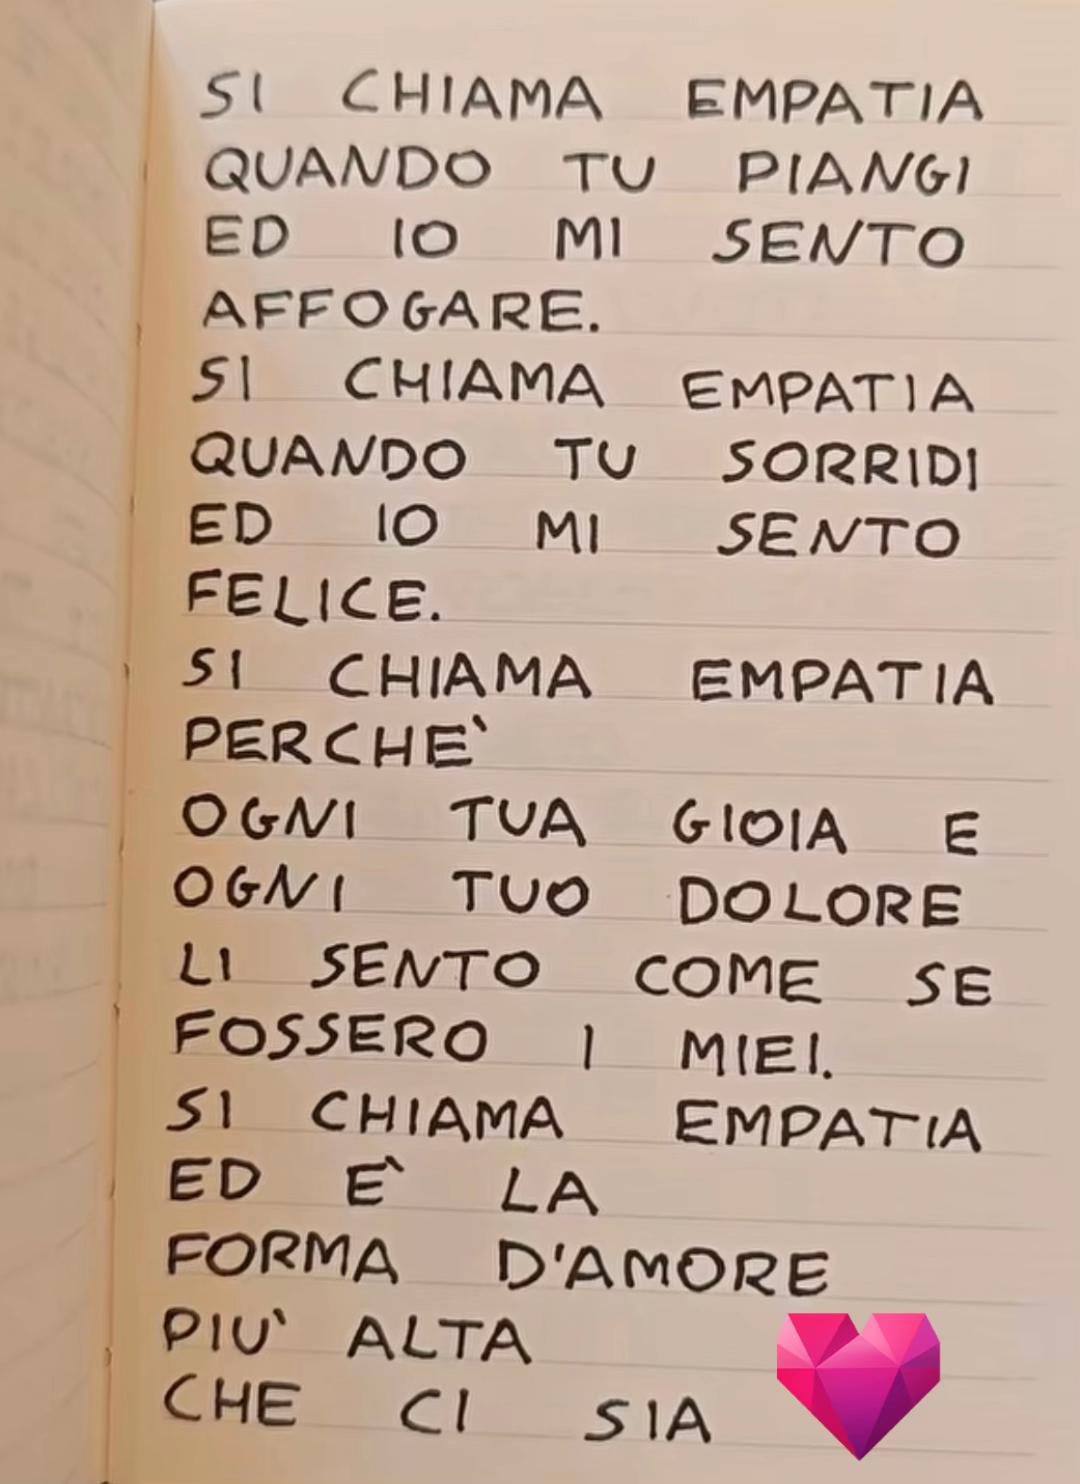 SI CHIAMA EMPATIA
QUANDO TU PIANGI
ED IO MI SENTO
AFFOGARE.
SI CHIAMA EMPATIA
QUANDO TU SORRIDI
ED IO MI SENTO
FELICE.
SI CHIAMA EMPATIA
PERCHE`
OGNI TUA GIOIA E
OGNI TUO DOLORE
LI SENTO COME SE
FOSSERO I MIEI.
SI CHIAMA EMPATIA
ED E` LA
FORMA D'AMORE
PIU` ALTA
CHE CI SIA